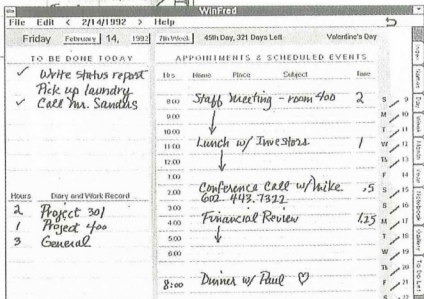 WinFred
File Edit < 2/14/1992 > Help
Friday February 14, 1992 7th Week 45th Day, 321 Days Left Valentine's Day
TO BE DONE TODAY
✓ Write status report
Pick up laundry
✓ Call Mr. Sanders
Hours Diary and Work Record
2 Project 301
1 Project 400
3 General
APPOINTMENTS & SCHEDULED EVENTS
Hrs Name Place Subject Time
8:00 Staff Meeting - room 400 2
9:00
10:00
11:00 Lunch w/ Investors 1
12:00
1:00
2:00 Conference Call w/ Mike .5
602. 443.7322
3:00
4:00 Financial Review 1.25
5:00
6:00
8:00 Dinner w/ Paul ♡
S 9
M 10
T 11
W 12
Th 13
F 14
S 15
S 16
M 17
T 18
W 19
Th 20
F 21
S 22
Index
Names
Day
Week
Month
Year
Notebook
To Do List